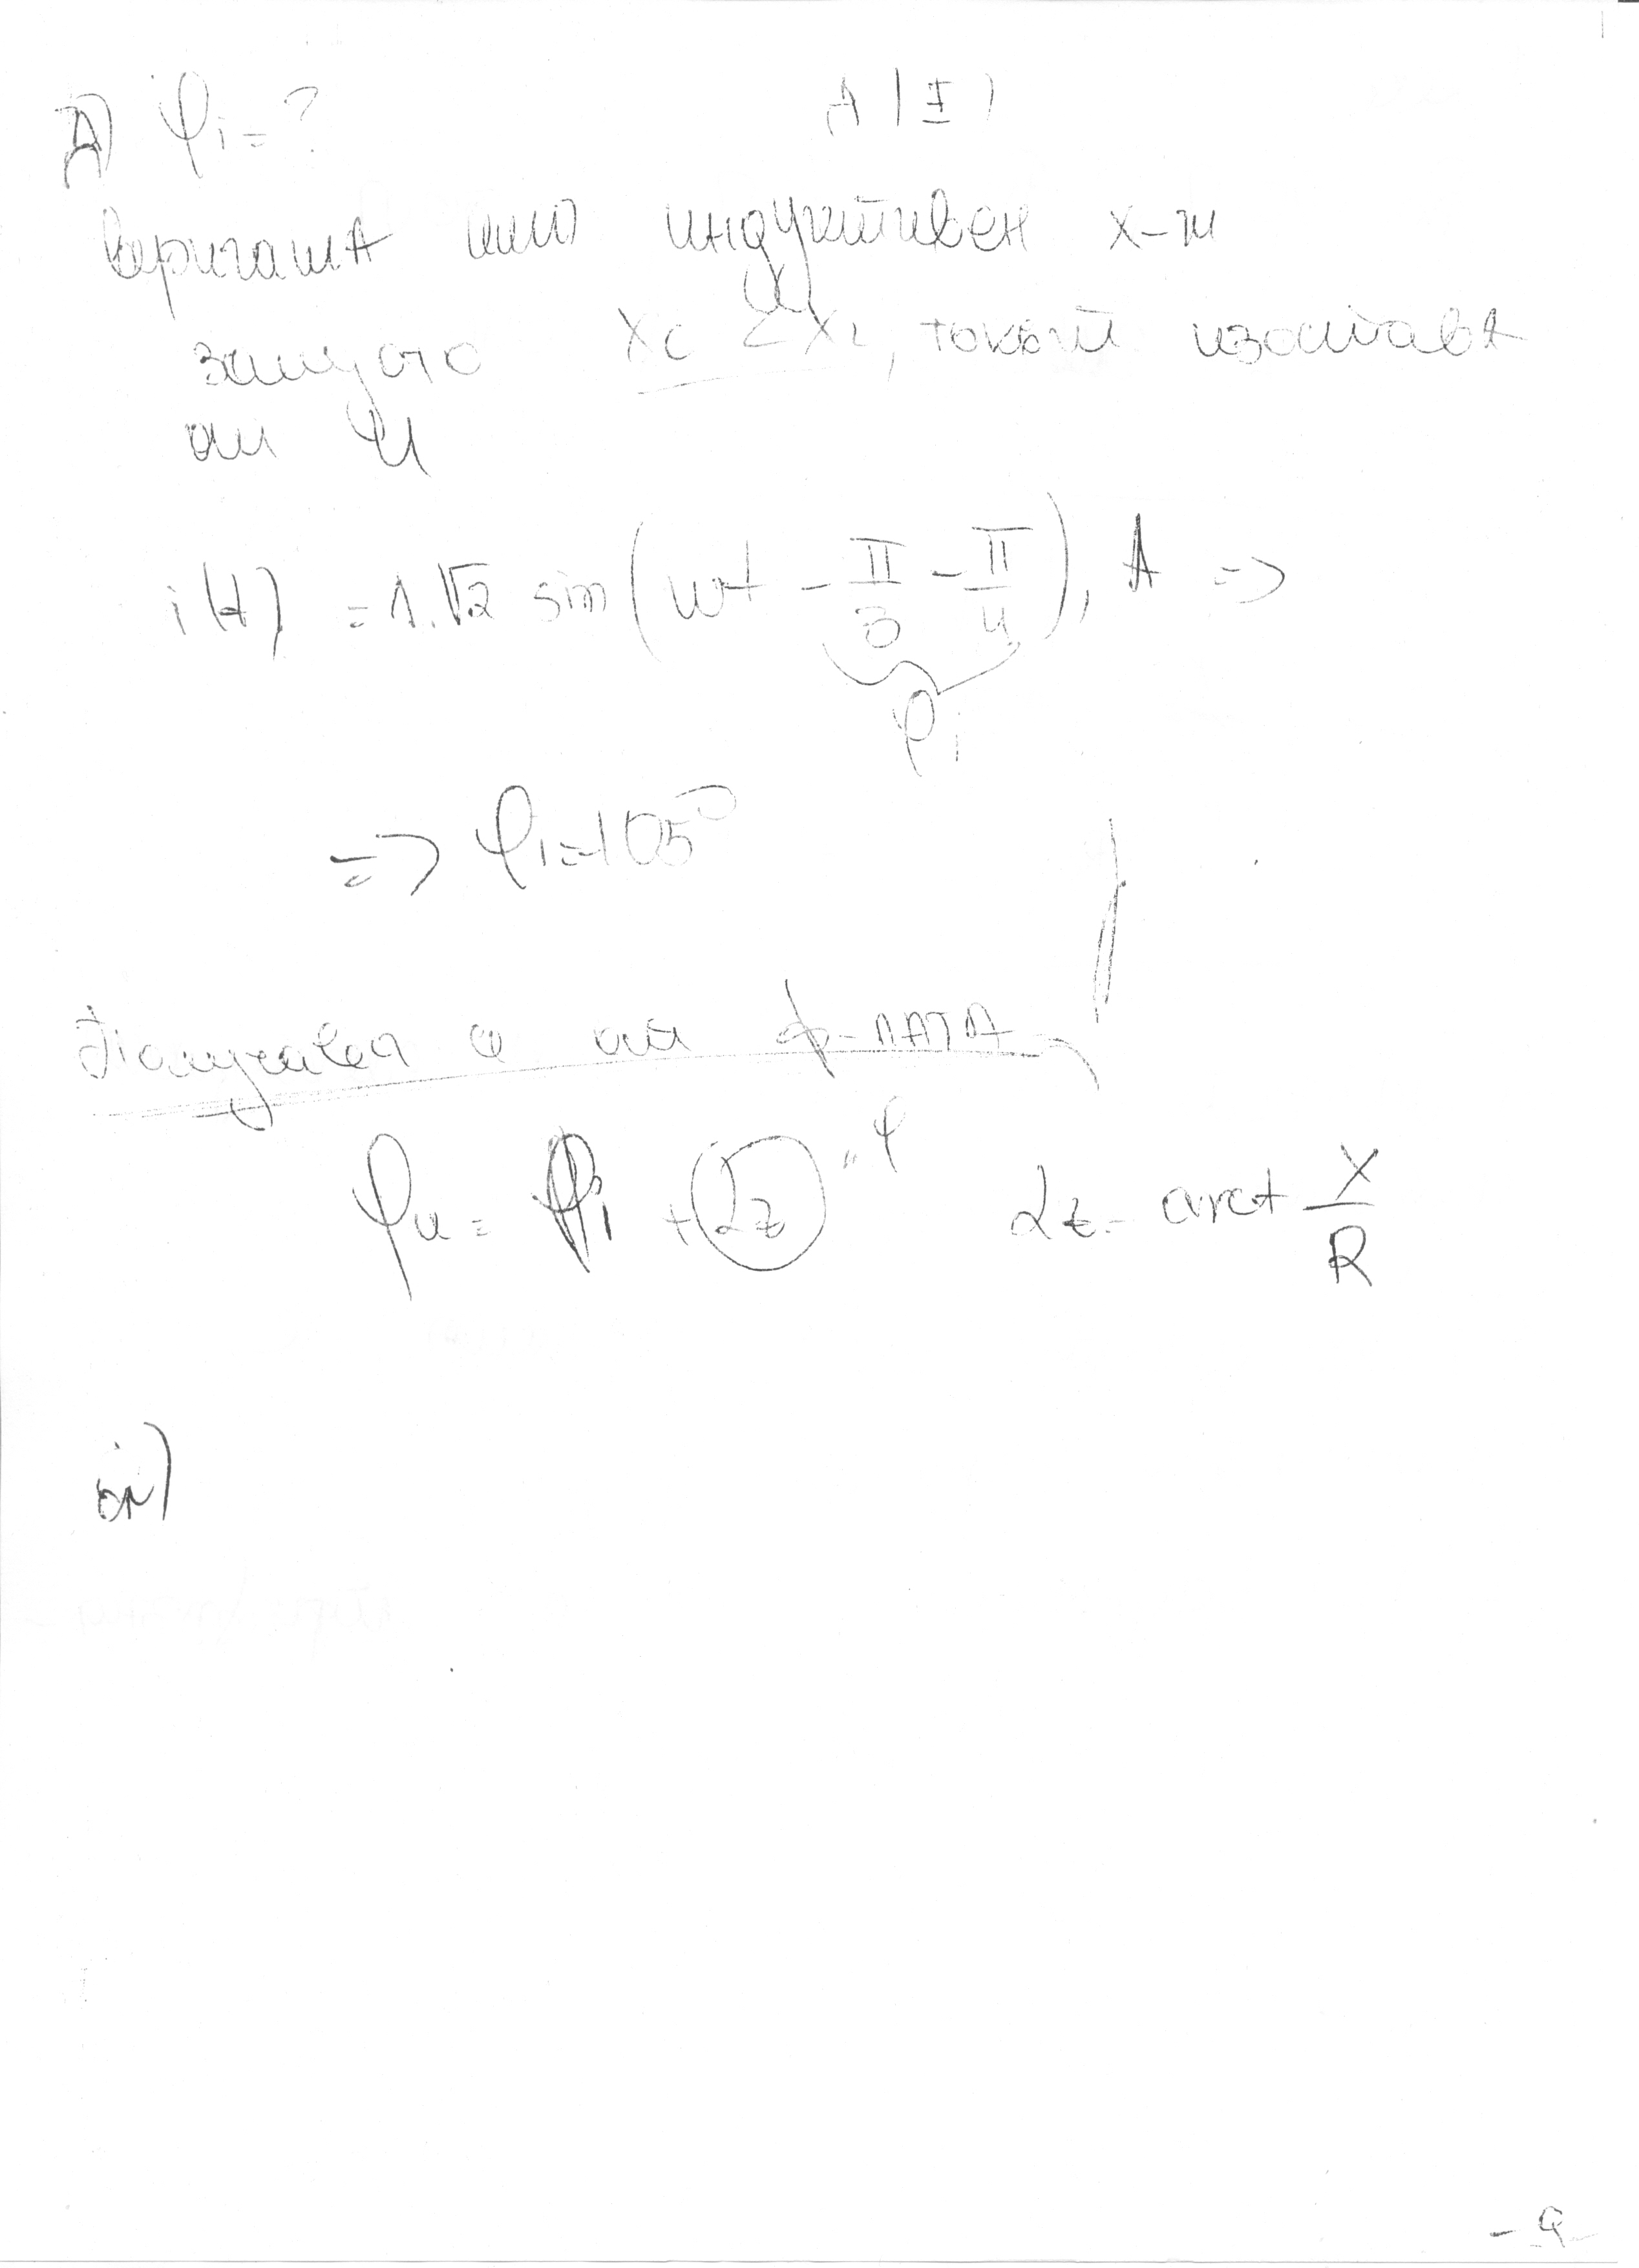 A | I )
Д) φi = ?
Веригата има индуктивен х-р
защото Xc < XL, токът изостава
от U
i(t) = 1.√2 sin(ωt - π/3 - π/4), A =>
φi
=> φi = -105°
Получава се от ф-лата
φu = φi + αz " φ αz = arct X/R
- 9